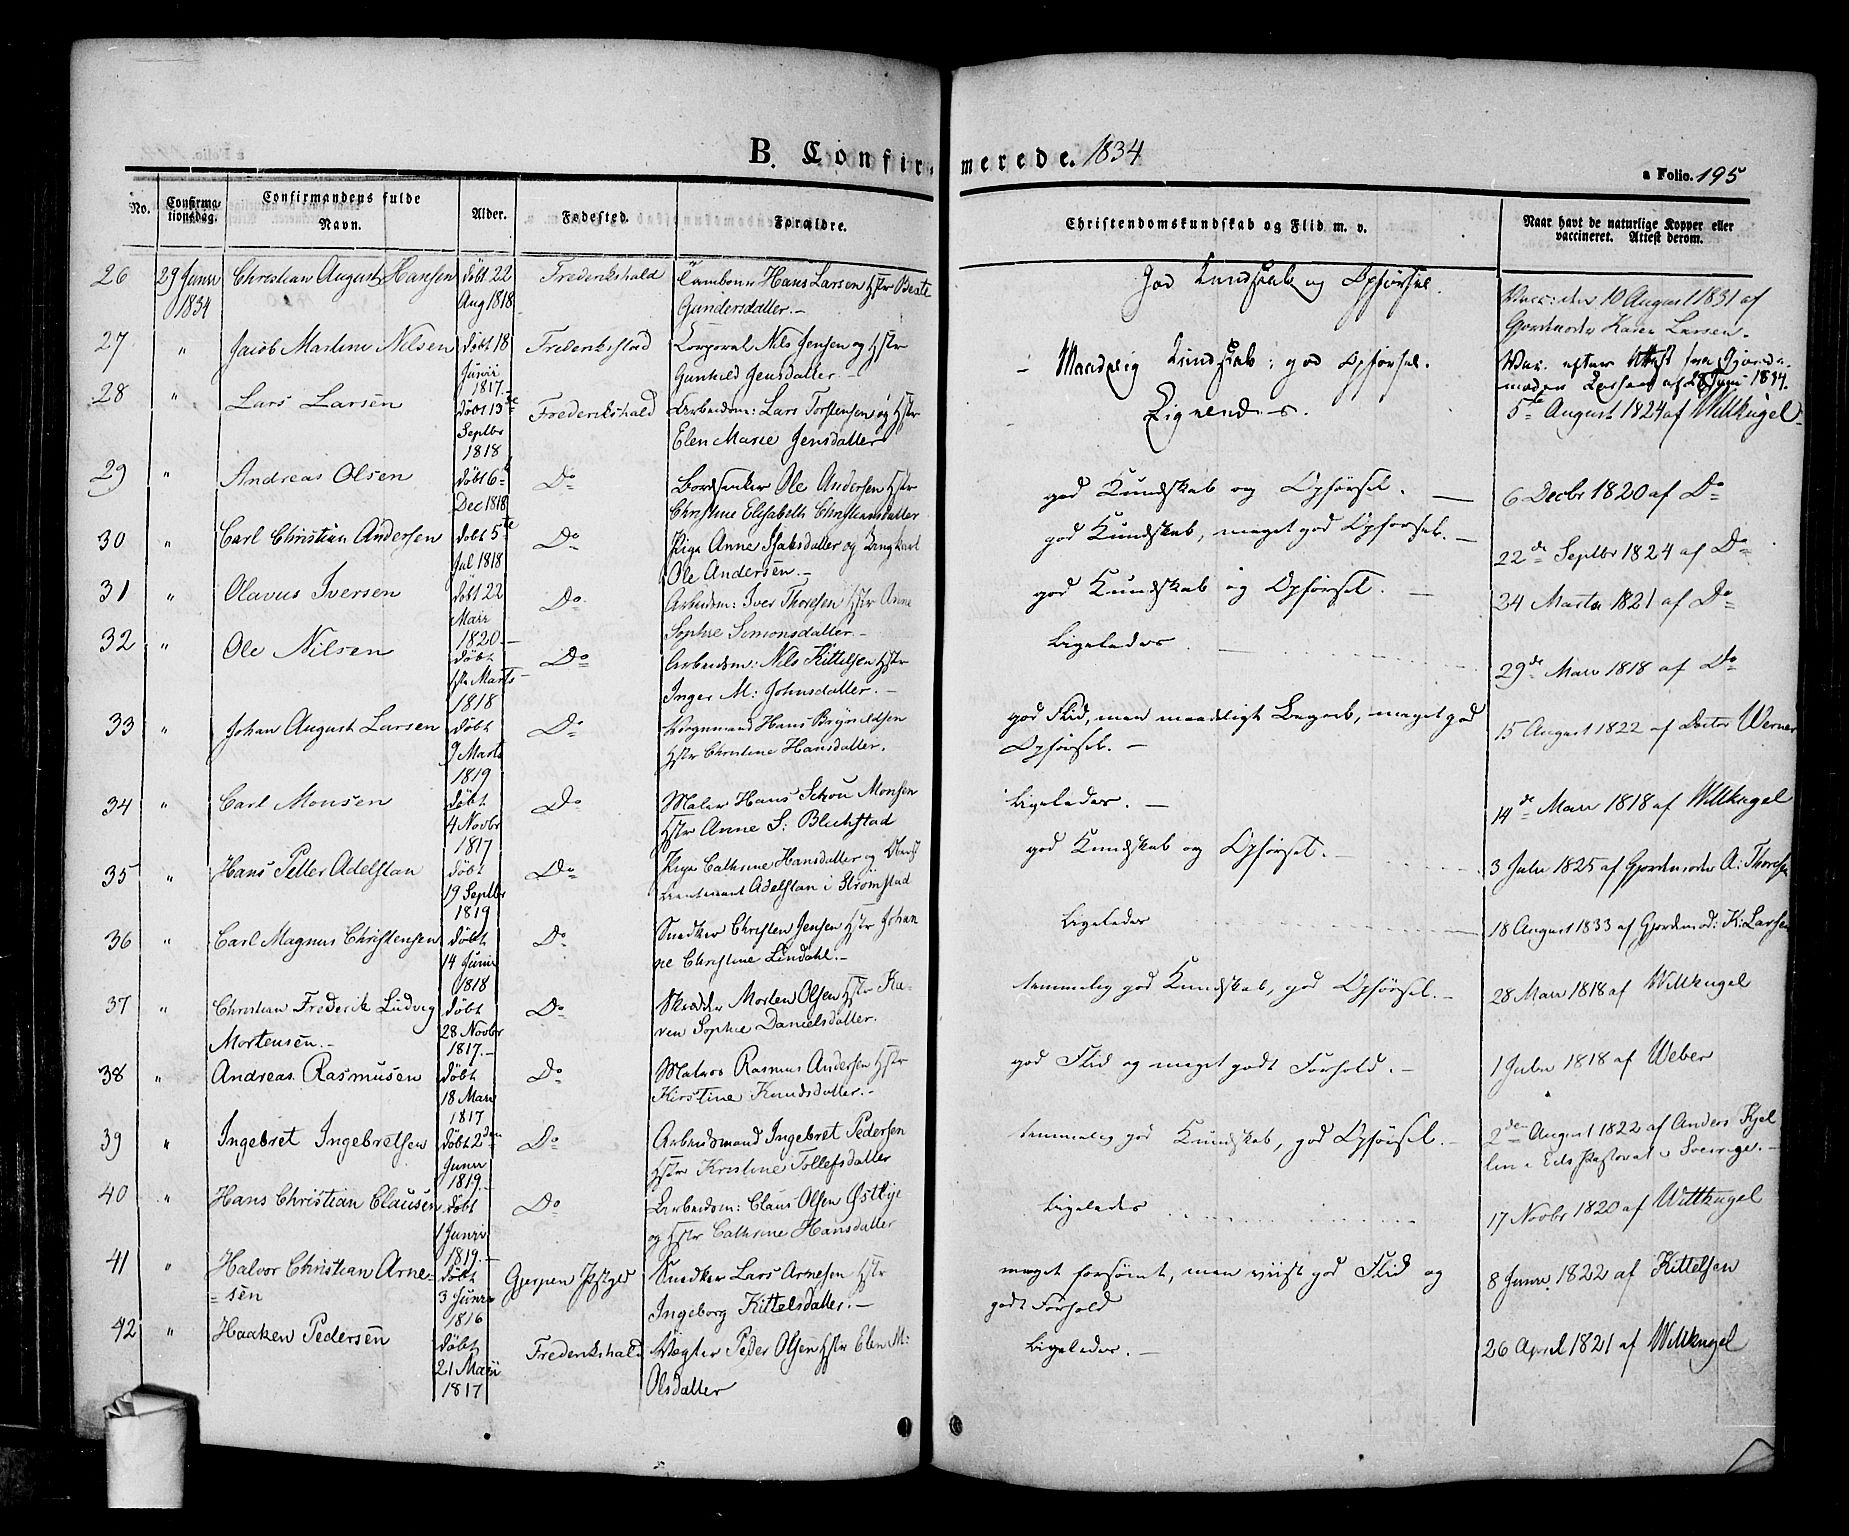 B. Confirmerede. 1834
a Folio. 195
No. Confirmationsdag. Confirmandens fulde Navn. Alder. Fødested. Forældre. Christendomskundskab og Flid m. v. Naar havt de naturlige Kopper eller vaccineret. Attest derom.
26 29 Juni 1834 Christian August Hansen døbt 22 Aug 1818 Frederikshald Hans Larsen Hstr Beate Gundersdatter.- God Kundskab og Opførsel. Vacc: den 10 August 1831 af Gjordmoder Karen Larsen.
27 " Jacob Martin Nilsen døbt 18 Junii 1817.- Frederikstad Corporal Nils Jensen og Hstr Gunhild Jensdatter.- Maadelig Kundskab; god Opførsel. Vac. efter Attest fra Gjordemoder Larsen af 28 Juni 1834.
28 " Lars Larsen døbt 13de Septbr 1818 Frederikshald Arbeidsm: Lars Torstensen og Hstr Elen Marie Jensdatter Ligeledes. 5te August 1824 af Wiltkugel.
29 " Andreas Olsen døbt 6te Dec 1818 Do Ole Andersen Hstr Christine Elisabeth Christiansdatter god Kundskab og Opførsel. 6 Decbr 1820 af Do
30 " Carl Christian Andersen døbt 5te Jul 1818 Do Pige Anne Isaksdatter og Ungkarl Ole Andersen.- god Kundskab, meget god Opførsel.- 22de Septbr 1824 af Do
31 " Olavus Iversen døbt 22 Mai 1820 Do Arbeidsm: Iver Thoresen Hstr Anne Sophie Simonsdatter.- god Kundskab og Opførsel.- 24 Marts 1821 af Do
32 " Ole Nilsen døbt 1ste Marts 1818 Do Arbeidsm: Nils Kittelsen Hstr Inger M: Johnsdatter.- Ligeledes 29de Mai 1818 af Do
33 " Johan August Larsen døbt 9 Marts 1819 Do Hans Brynildsen Hstr Christine Hansdatter. god Flid, men maadeligt Begreb, meget god Opførsel.- 15 August 1822 af Doctor Werner
34 " Carl Monsen døbt 4 Novbr 1817 Do Maler Hans Schou Monsen Hstr Anne S: Blichstad Ligeledes.- 14de Mai 1818 af Wiltkugel
35 " Hans Petter Adelstan døbt 19 Septbr 1819 Do Pige Cathrine Hansdatter og Oberstlieutenant Adelstan i Strømstad god Kundskab og Opførsel.- 3 Julii 1825 af Gjordmoder A: Thoresen
36 " Carl Magnus Christensen døbt 14 Junii 1818 Do Snedker Christen Jensen Hstr Johanne Christine Lindahl.- Ligeledes 18 August 1833 af Gjordmod: K: Larsen
37 " Christian Frederik Ludvig Mortensen.- døbt 28 Novbr 1817.- Do Skrædder Morten Olsen Hstr Karen Sophie Danielsdatter. temmelig god Kundskab, god Opførsel.- 28 Mai 1818 af Wiltkugel
38 " Andreas Rasmusen døbt 18 Mai 1817 Do Matros Rasmus Andersen Hstr Kirstine Knudsdatter.- god Flid og meget godt Forhold.- 1 Julii 1818 af Weber
39 " Ingebret Ingebretsen døbt 2den Junii 1819.- Do Arbeidsmand Ingebret Pedersen Hstr Kristine Tollefsdatter temmelig god Kundskab, god Opførsel.- 2den August 1822 af Anders Kjellin i Eds Pastorat i Sverige.-
40 " Hans Christian Clausen døbt 1 Junii 1819.- Do Arbeidsm: Claus Olsen Østbye og Hstr Cathrine Hansdatter Ligeledes 17 Novbr 1820 af Wiltkugel
41 " Halvor Christian Arnesen døbt 3 Junii 1816 Gjerpen Pstgjd Snedker Lars Arnesen Hstr Ingeborg Kittelsdatter.- meget forsømt, men viist god Flid og godt Forhold 8 Junii 1822 af Kittelsen
42 " Haaken Pedersen døbt 21 Maii 1817 Frederikshald Vægter Peder Olsen Hstr Elen M: Olsdatter Ligeledes.- 26 April 1821 af Wiltkugel